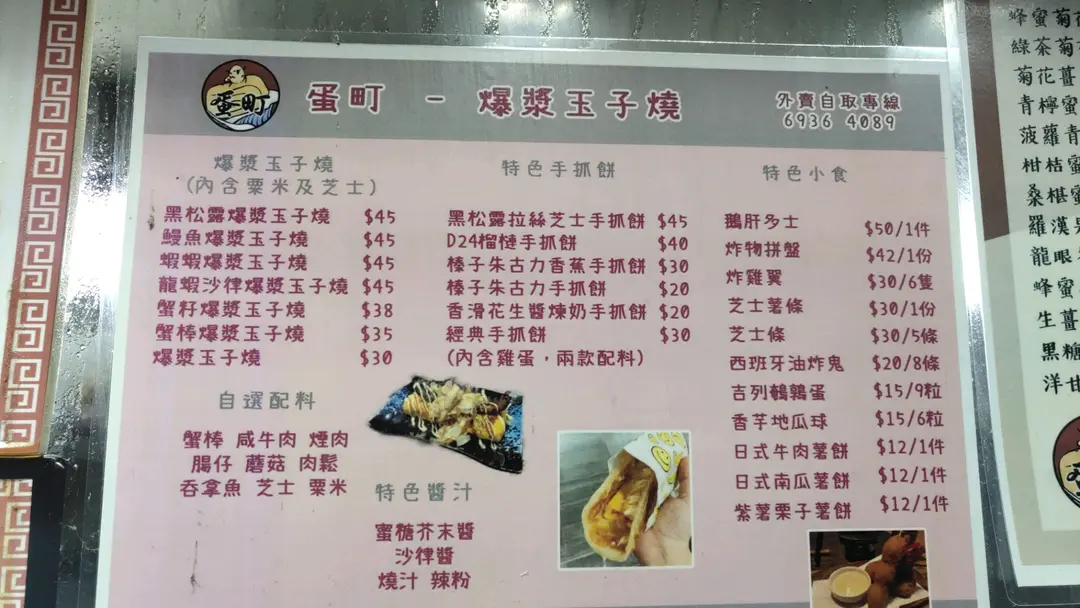 蛋町
蛋町 - 爆漿玉子燒
外賣自取專線
6936 4089
爆漿玉子燒
(內含粟米及芝士)
黑松露爆漿玉子燒 $45
鰻魚爆漿玉子燒 $45
蝦蝦爆漿玉子燒 $45
龍蝦沙律爆漿玉子燒 $45
蟹籽爆漿玉子燒 $38
蟹棒爆漿玉子燒 $35
爆漿玉子燒 $30
自選配料
蟹棒 咸牛肉 煙肉
腸仔 蘑菇 肉鬆
吞拿魚 芝士 粟米
特色手抓餅
黑松露拉絲芝士手抓餅 $45
D24榴槤手抓餅 $40
榛子朱古力香蕉手抓餅 $30
榛子朱古力手抓餅 $20
香滑花生醬煉奶手抓餅 $20
經典手抓餅 $30
(內含雞蛋，兩款配料)
特色醬汁
蜜糖芥末醬
沙律醬
燒汁 辣粉
特色小食
鵝肝多士 $50/1件
炸物拼盤 $42/1份
炸雞翼 $30/6隻
芝士薯條 $30/1份
芝士條 $30/5條
西班牙油炸鬼 $20/8條
吉列鵪鶉蛋 $15/9粒
香芋地瓜球 $15/6粒
日式牛肉薯餅 $12/1件
日式南瓜薯餅 $12/1件
紫薯栗子薯餅 $12/1件
蜂蜜菊
綠茶菊
菊花薑
青檸蜜
菠蘿青
柑桔蜜
桑椹蜜
羅漢果
龍眼
蜂蜜
生薑
黑糖
洋甘